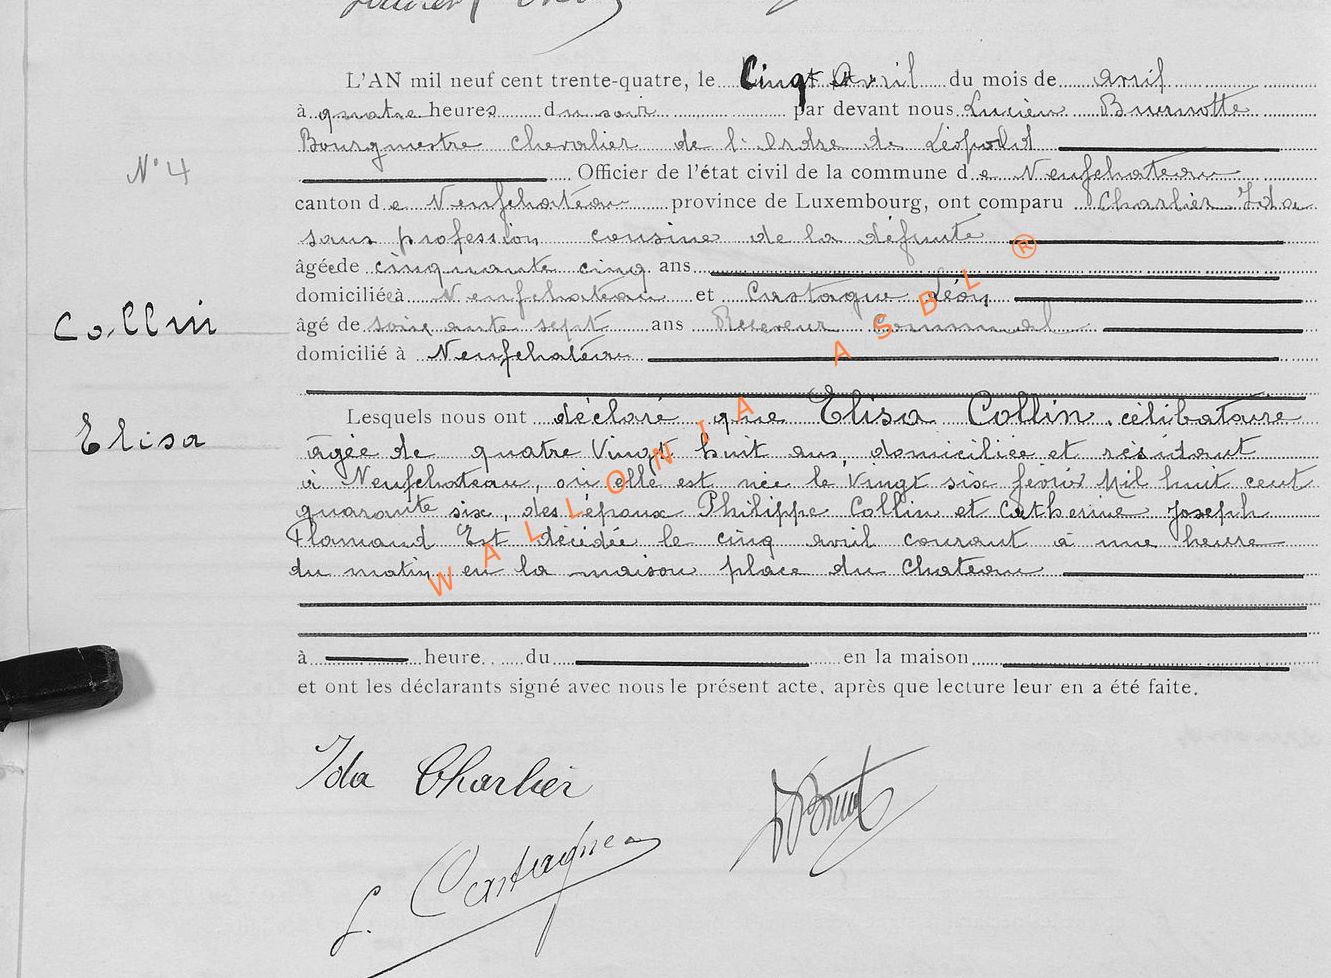 L'AN mil neuf cent trente-quatre, le Cinq Avril du mois de avril
à quatre heures du soir par devant nous Lucien Burnotte
Bourgmestre Chevalier de l'Ordre de Léopold
N° 4
Officier de l'état civil de la commune de Neufchateau
canton de Neufchateau province de Luxembourg, ont comparu Charlier Ida
sans profession cousine de la défunte
âgée de cinquante cinq ans
domiciliée à Neufchateau et Castagne Léon
Collin
âgé de soixante sept ans Receveur Communal
domicilié à Neufchatéau
Elisa
Lesquels nous ont déclaré que Elisa Collin, célibataire
âgée de quatre Vingt huit ans, domiciliée et résidant
à Neufchateau, où elle est née le Vingt six février Mil huit cent
quarante six, des époux Philippe Collin et Catherine Joseph
Flamand Est décédée le cinq avril courant à une heure
du matin en la maison place du Chateau
à heure du en la maison
et ont les déclarants signé avec nous le présent acte, après que lecture leur en a été faite.
Ida Charlier
L. Castagne
WALLONIA ASBL ®